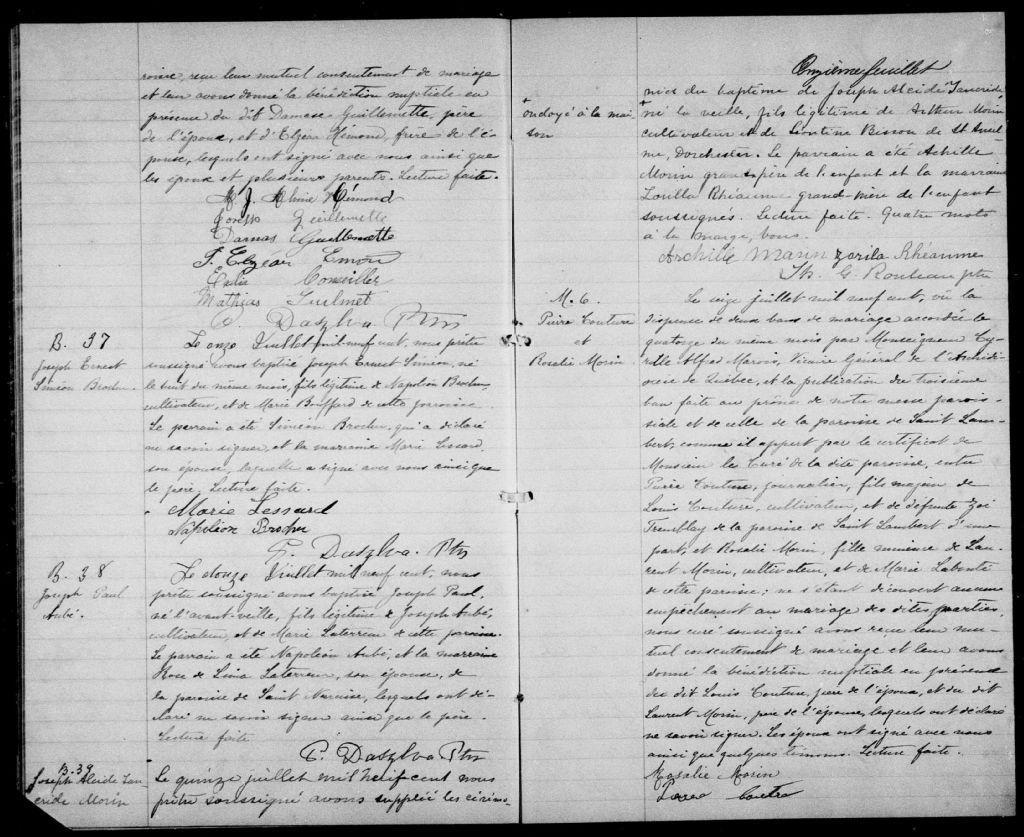 roisse, reçu leur mutuel consentement de mariage
et leur avons donné la bénédiction nuptiale en
présence du dit Damase Guillemette, père
de l'époux, et d'Elzéar Hémond, frère de l'é-
pouse, lesquels ont signé avec nous ainsi que
les époux et plusieurs parents. Lecture faite.
M. J. Albine Hémond
Joseph Guillemette
Damas Guillemette
J. Elzear Emon
Conseiller
Mathias Guilmet
Daszlva Ptre
B. 37
Joseph Ernest
Siméon Brochu.
Le onze Juillet mil neuf cent, nous prêtre
soussigné avons baptisé Joseph Ernest Siméon, né
le huit du même mois, fils légitime de Napoléon Brochu,
cultivateur, et de Marie Bouffard de cette paroisse.
Le parrain a été Siméon Brochu, qui a déclaré
ne savoir signer, et la marraine Marie Lessard,
son épouse, laquelle a signé avec nous ainsi que
le père. Lecture faite.
Marie Lessard
Napoléon Brochu
Daszlva. Ptre
B. 38
Joseph Paul
Aubé.
Le douze Juillet mil neuf cent, nous
prêtre soussigné avons baptisé Joseph Paul,
né l'avant-veille, fils légitime de Joseph Aubé,
cultivateur et de Marie Laterreur de cette paroisse.
Le parrain a été Napoléon Aubé, et la marraine
Rose de Lima Laterreur, son épouse, de
la paroisse de Saint Narcisse, lesquels ont dé-
claré ne savoir signer ainsi que le père.
Lecture faite
Daszlva Ptre
B. 39
Joseph Alcide Tan-
cride Morin
Le quinze juillet mil neuf cent nous
prêtre soussigné avons suppléé les cérémo-
Onzième feuillet
nies du baptême de Joseph Alcide Tancride
+ ondoyé à la mai
son
+ né la veille, fils légitime de Arthur Morin
cultivateur et de Léontine Bisson de St Ansel-
me, Dorchester. Le parrain a été Achille
Morin grand-père de l'enfant et la marraine
Rhéaume grand-mère de l'enfant
soussignés. Lecture faite. Quatre mots
à la marge, bons.
Archille Marin Zorila Rhéaume
Th. G. Rouleau ptre
M. 6.
Pierre Couture
et
Rosalie Morin
Le seize juillet mil neuf cent, vu la
dispense de deux bans de mariage accordée le
quatorze du même mois par Monseigneur Cy-
rille Alfred Marois, Vicaire Général de l'Archidio-
cèse de Québec, et la publication du troisième
ban faite au prône de notre messe parois-
siale et de celle de la paroisse de Saint Lam-
bert, comme il appert par le certificat de
Monsieur le Curé de la dite paroisse, entre
Pierre Couture, journalier, fils majeur de
Louis Couture, cultivateur, et de défunte Zoé
Tremblay de la paroisse de Saint Lambert d'une
part, et Rosalie Morin, fille mineure de Lau-
rent Morin, cultivateur, et de Marie Labonté
de cette paroisse; ne s'étant découvert aucun
empêchement au mariage des dites parties,
nous curé soussigné avons reçu leur mu-
tuel consentement de mariage et leur avons
donné la bénédiction nuptiale en présence
du dit Louis Couture, père de l'époux, et du dit
Laurent Morin, père de l'épouse, lesquels ont déclaré
ne savoir signer. Les époux ont signé avec nous
ainsi que quelques témoins. Lecture faite.
Rosalie Morin